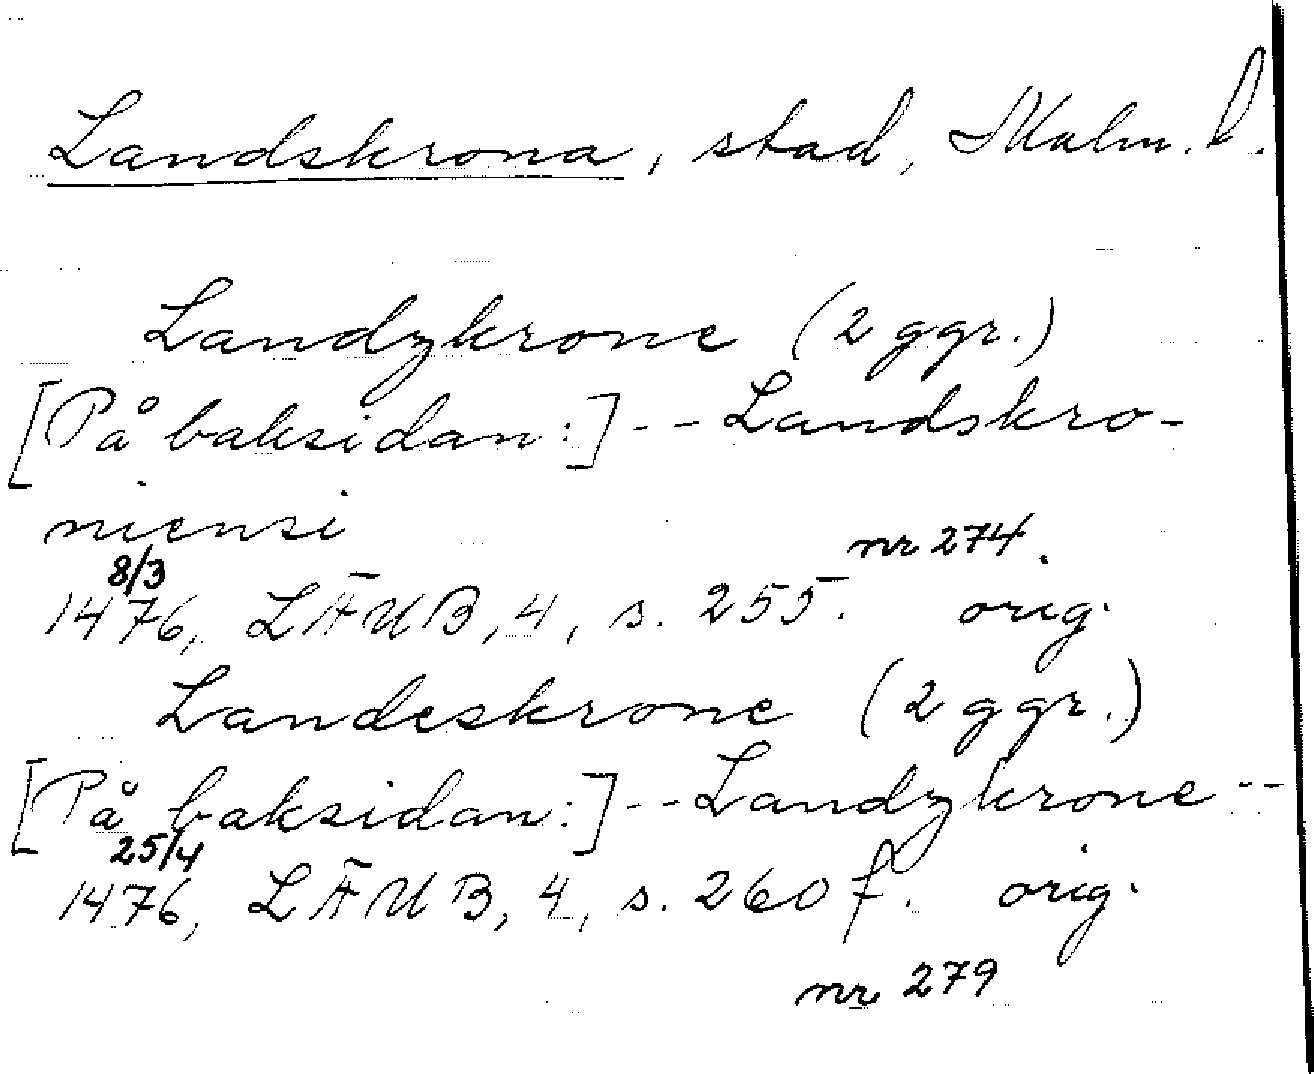 Landskrona, stad, Malm. l.
Landzkrone (2 ggr.)
[På baksidan:] -- Landskro-
niensi
nr 274.
8/3
1476, LÄUB, 4, s. 255. orig.
Landeskrone (2 ggr.)
[På baksidan:] -- Landzkrone --
25/4
1476, LÄUB, 4, s. 260 f. orig.
nr 279